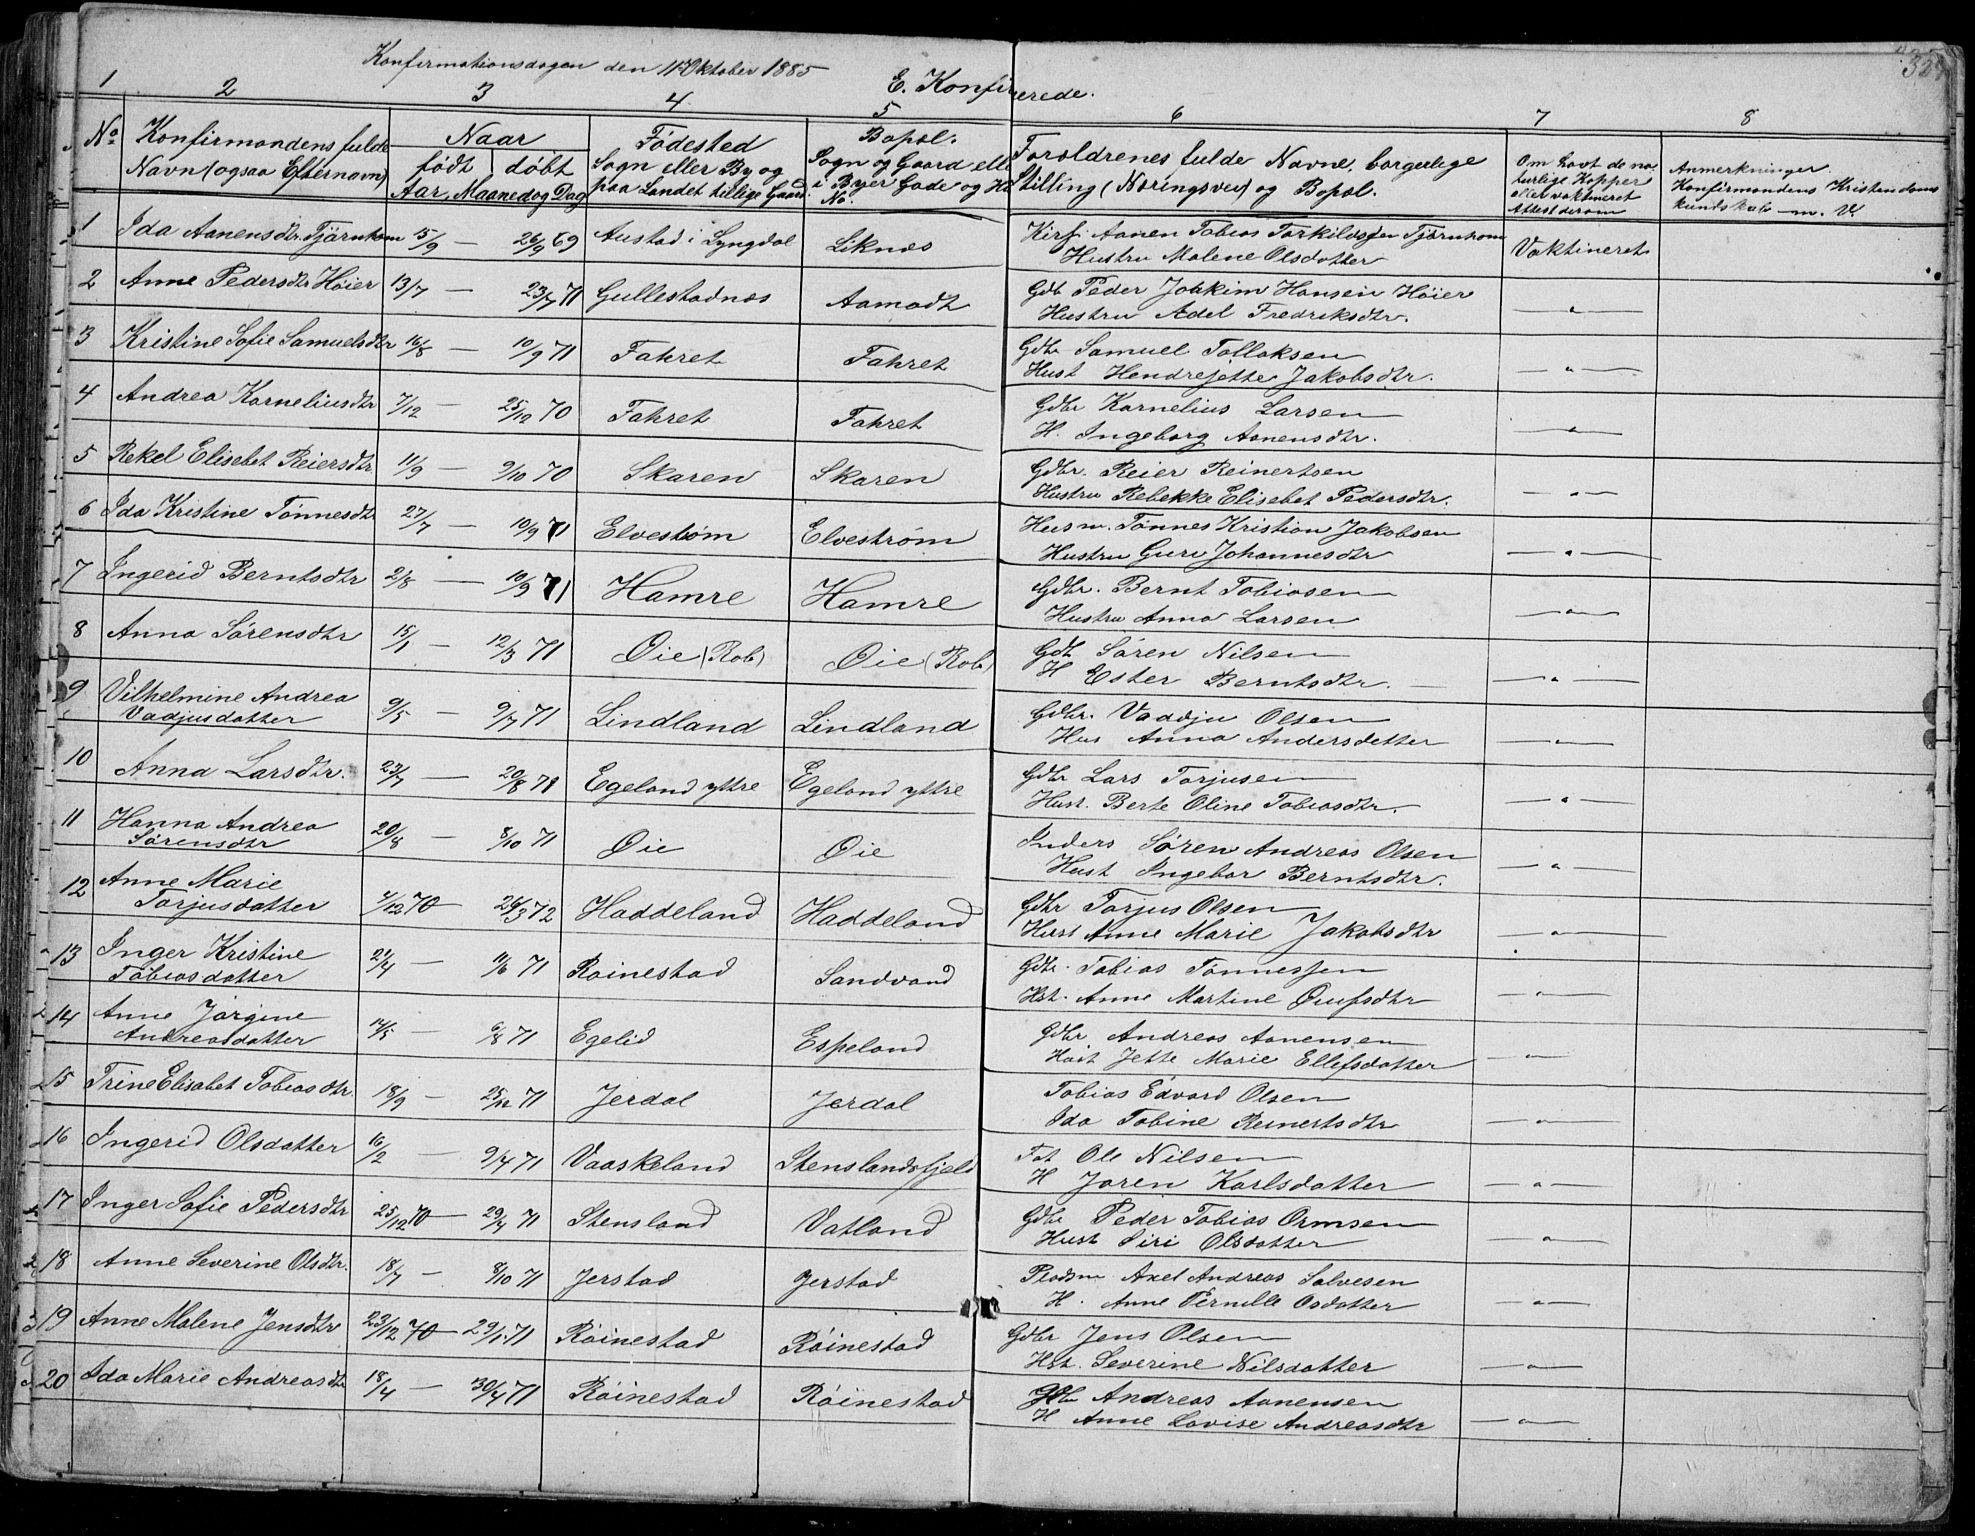 Konfirmationsdagen den 11 Oktober 1885
E. Konfirmerede.
1 2 3 4 5 6 7 8
No. Konfirmandens fulde Navn (ogsaa Efternavn) Naar født døbt Aar, Maaned og Dag Fødested Sogn eller By og paa Landet tillige Gaard. Bopæl. Sogn og Gaard eller i Byer Gade og Hs No. Forældrenes fulde Navne, borgerlige Stilling (Næringsvei) og Bopæl. Om havt de naturlige Kopper eller vaktineret Attest derom Anmerkninger. Konfirmandens Kristendomskundskab m. V.
1 Ida Aanensdtr. Tjørnhom 15/9 — 26/9 69 Austad i Lyngdal Liknæs Kirks. Aanen Tobias Torkildsen Tjørnhom Vaktineret
Hustru Malene Olsdatter
2 Anne Pedersdtr Høier 13/7 — 23/7 71 Gullestadnæs Aamodt Gdb Peder Joakim Hansen Høier — " —
Hustru Adel Fredriksdtr.
3 Kristine Sofie Samuelsdtr 16/8 — 10/9 71 Fahret Fahret Gdbr Samuel Tollaksen — " —
Hust Hendrejette Jakobsdtr.
4 Andrea Korneliusdtr 7/12 — 25/12 70 Fahret Fahret Gdbr Kornelius Larsen — " —
H. Ingeborg Aanensdtr.
5 Rekel Elisebet Reiersdtr 11/9 — 9/10 70 Skaren Skaren Gdbr. Reier Reinertsen — " —
Hustru Rebekke Elisebet Pedersdtr.
6 Ida Kristine Tønnesdtr 27/7 — 10/9 71 Elvestrøm Elvestrøm Husm. Tønnes Kristian Jakobsen — " —
Hustru Guru Johannesdtr
7 Ingerid Berntsdtr 2/8 — 10/9 71 Hamre Hamre Gdbr. Bernt Tobiasen — " —
Hustru Anna Larsen
8 Anna Sørensdtr 15/1 — 12/3 71 Øie (Rob) Øie (Rob) Gdb Søren Nilsen — " —
H Ester Berntsdtr. —
9 Vilhelmine Andrea Vadjusdatter 9/5 — 9/7 71 Lindland Lindland Gdbr. Vaddju Olsen — " —
Hus Anna Andersdatter
10 Anna Larsdtr. 23/7 — 20/8 71 Egeland yttre Egeland yttre Gdbr Lars Torjusen — " —
Hust. Berte Oline Tobiasdtr.
11 Hanna Andrea Sørensdtr 20/8 — 8/10 71 Øie Øie Inders Søren Andreas Olsen — " —
Hust Ingebor Berntsdtr.
12 Anne Marie Torjusdatter 4/12 70 — 24/3 72 Haddeland Haddeland Gdbr Torjus Olsen — " —
Hust Anne Marie Jakobsdtr
13 Inger Kristine Tobiasdatter 21/4 — 11/6 71 Røinestad Sandvand Gdbr. Tobias Tønnessen — " —
Hst. Anne Martine Ørufsdtr
14 Anne Jørgine Andreasdatter 14/5 — 6/8 71 Egelid Espeland Gdbr Andreas Aanensen — " —
Hust Jette Marie Ellefsdatter
15 Trine Elisabet Tobiasdtr. 18/9 — 25/12 71 Jerdal Jerdal Tobias Edvard Olsen — " —
Ida Tobine Reinertsdtr
16 Ingerid Olsdatter 16/2 — 9/4 71 Vaaskeland Stenslandsfjeld Fat Ole Nilsen — " —
H Joren Karlsdatter
17 Inger Sofie Pedersdtr 25/12 70 — 29/4 71 Stensland Vatland Gdbr Peder Tobias Ormsen — " —
Hust Siri Olsdatter
18 Anne Severine Olsdtr. 18/7 — 8/10 71 Jerstad Jerstad Pladsm Axel Andreas Salvesen — " —
H. Anne Pernille Osdatter
19 Anne Malene Jensdtr 23/12 70 — 29/1 71 Røinestad Røinestad Gdbr Jens Olsen — " —
Hst. Severine Nilsdatter
20 Ida Marie Andreasdtr 18/4 — 30/4 71 Røinestad Røinestad Gdbr Andreas Aanensen — " —
H Anne Lovise Andreasdtr